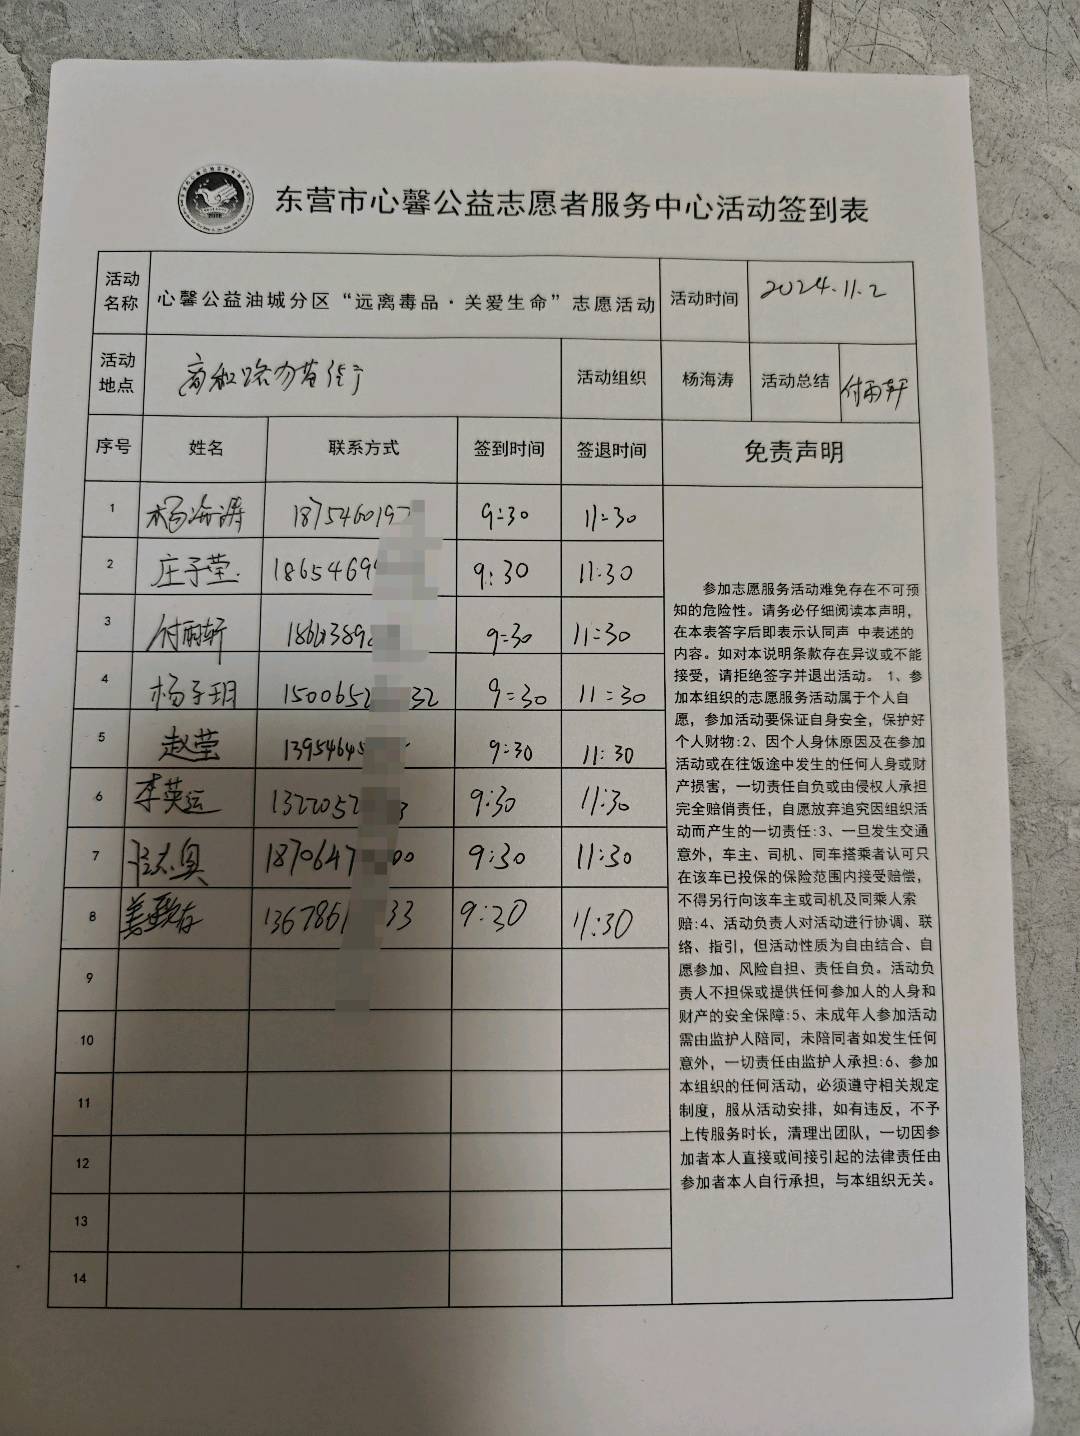 东营市心馨公益志愿者服务中心活动签到表
活动名称 心馨公益油城分区“远离毒品·关爱生命”志愿活动 活动时间 2024.11.2
活动地点 商和路 活动组织 杨海涛 活动总结 付雨轩
序号 姓名 联系方式 签到时间 签退时间 免责声明
1 杨海涛 1875460197 9:30 11:30
2 庄子莹 18654699 9:30 11:30
3 付雨轩 9:30 11:30
4 杨子玥 1500652 32 9:30 11:30
5 赵莹 13954645 9:30 11:30
6 李英运 1322052 3 9:30 11:30
7 1870647 00 9:30 11:30
8 1367861 33 9:30 11:30
9
10
11
12
13
14
参加志愿服务活动难免存在不可预
知的危险性。请务必仔细阅读本声明，
在本表答字后即表示认同声 中表述的
内容。如对本说明条款存在异议或不能
接受，请拒绝签字并退出活动。 1、参
加本组织的志愿服务活动属于个人自
愿，参加活动要保证自身安全，保护好
个人财物:2、因个人身休原因及在参加
活动或在往饭途中发生的任何人身或财
产损害，一切责任自负或由侵权人承担
完全赔俏责任，自愿放弃追究因组织活
动而产生的一切责任:3、一旦发生交通
意外，车主、司机、同车搭乘者认可只
在该车已投保的保险范围内接受赔偿，
不得另行向该车主或司机及同乘人索
赔:4、活动负责人对活动进行协调、联
络、指引，但活动性质为自由结合、自
愿参加、风险自担、责任自负。活动负
责人不担保或提供任何参加人的人身和
财产的安全保障:5、未成年人参加活动
需由监护人陪同，未陪同者如发生任何
意外，一切责任由监护人承担:6、参加
本组织的任何活动，必须遵守相关规定
制度，服从活动安排，如有违反，不予
上传服务时长，清理出团队，一切因参
加者本人直接或间接引起的法律责任由
参加者本人自行承担，与本组织无关。